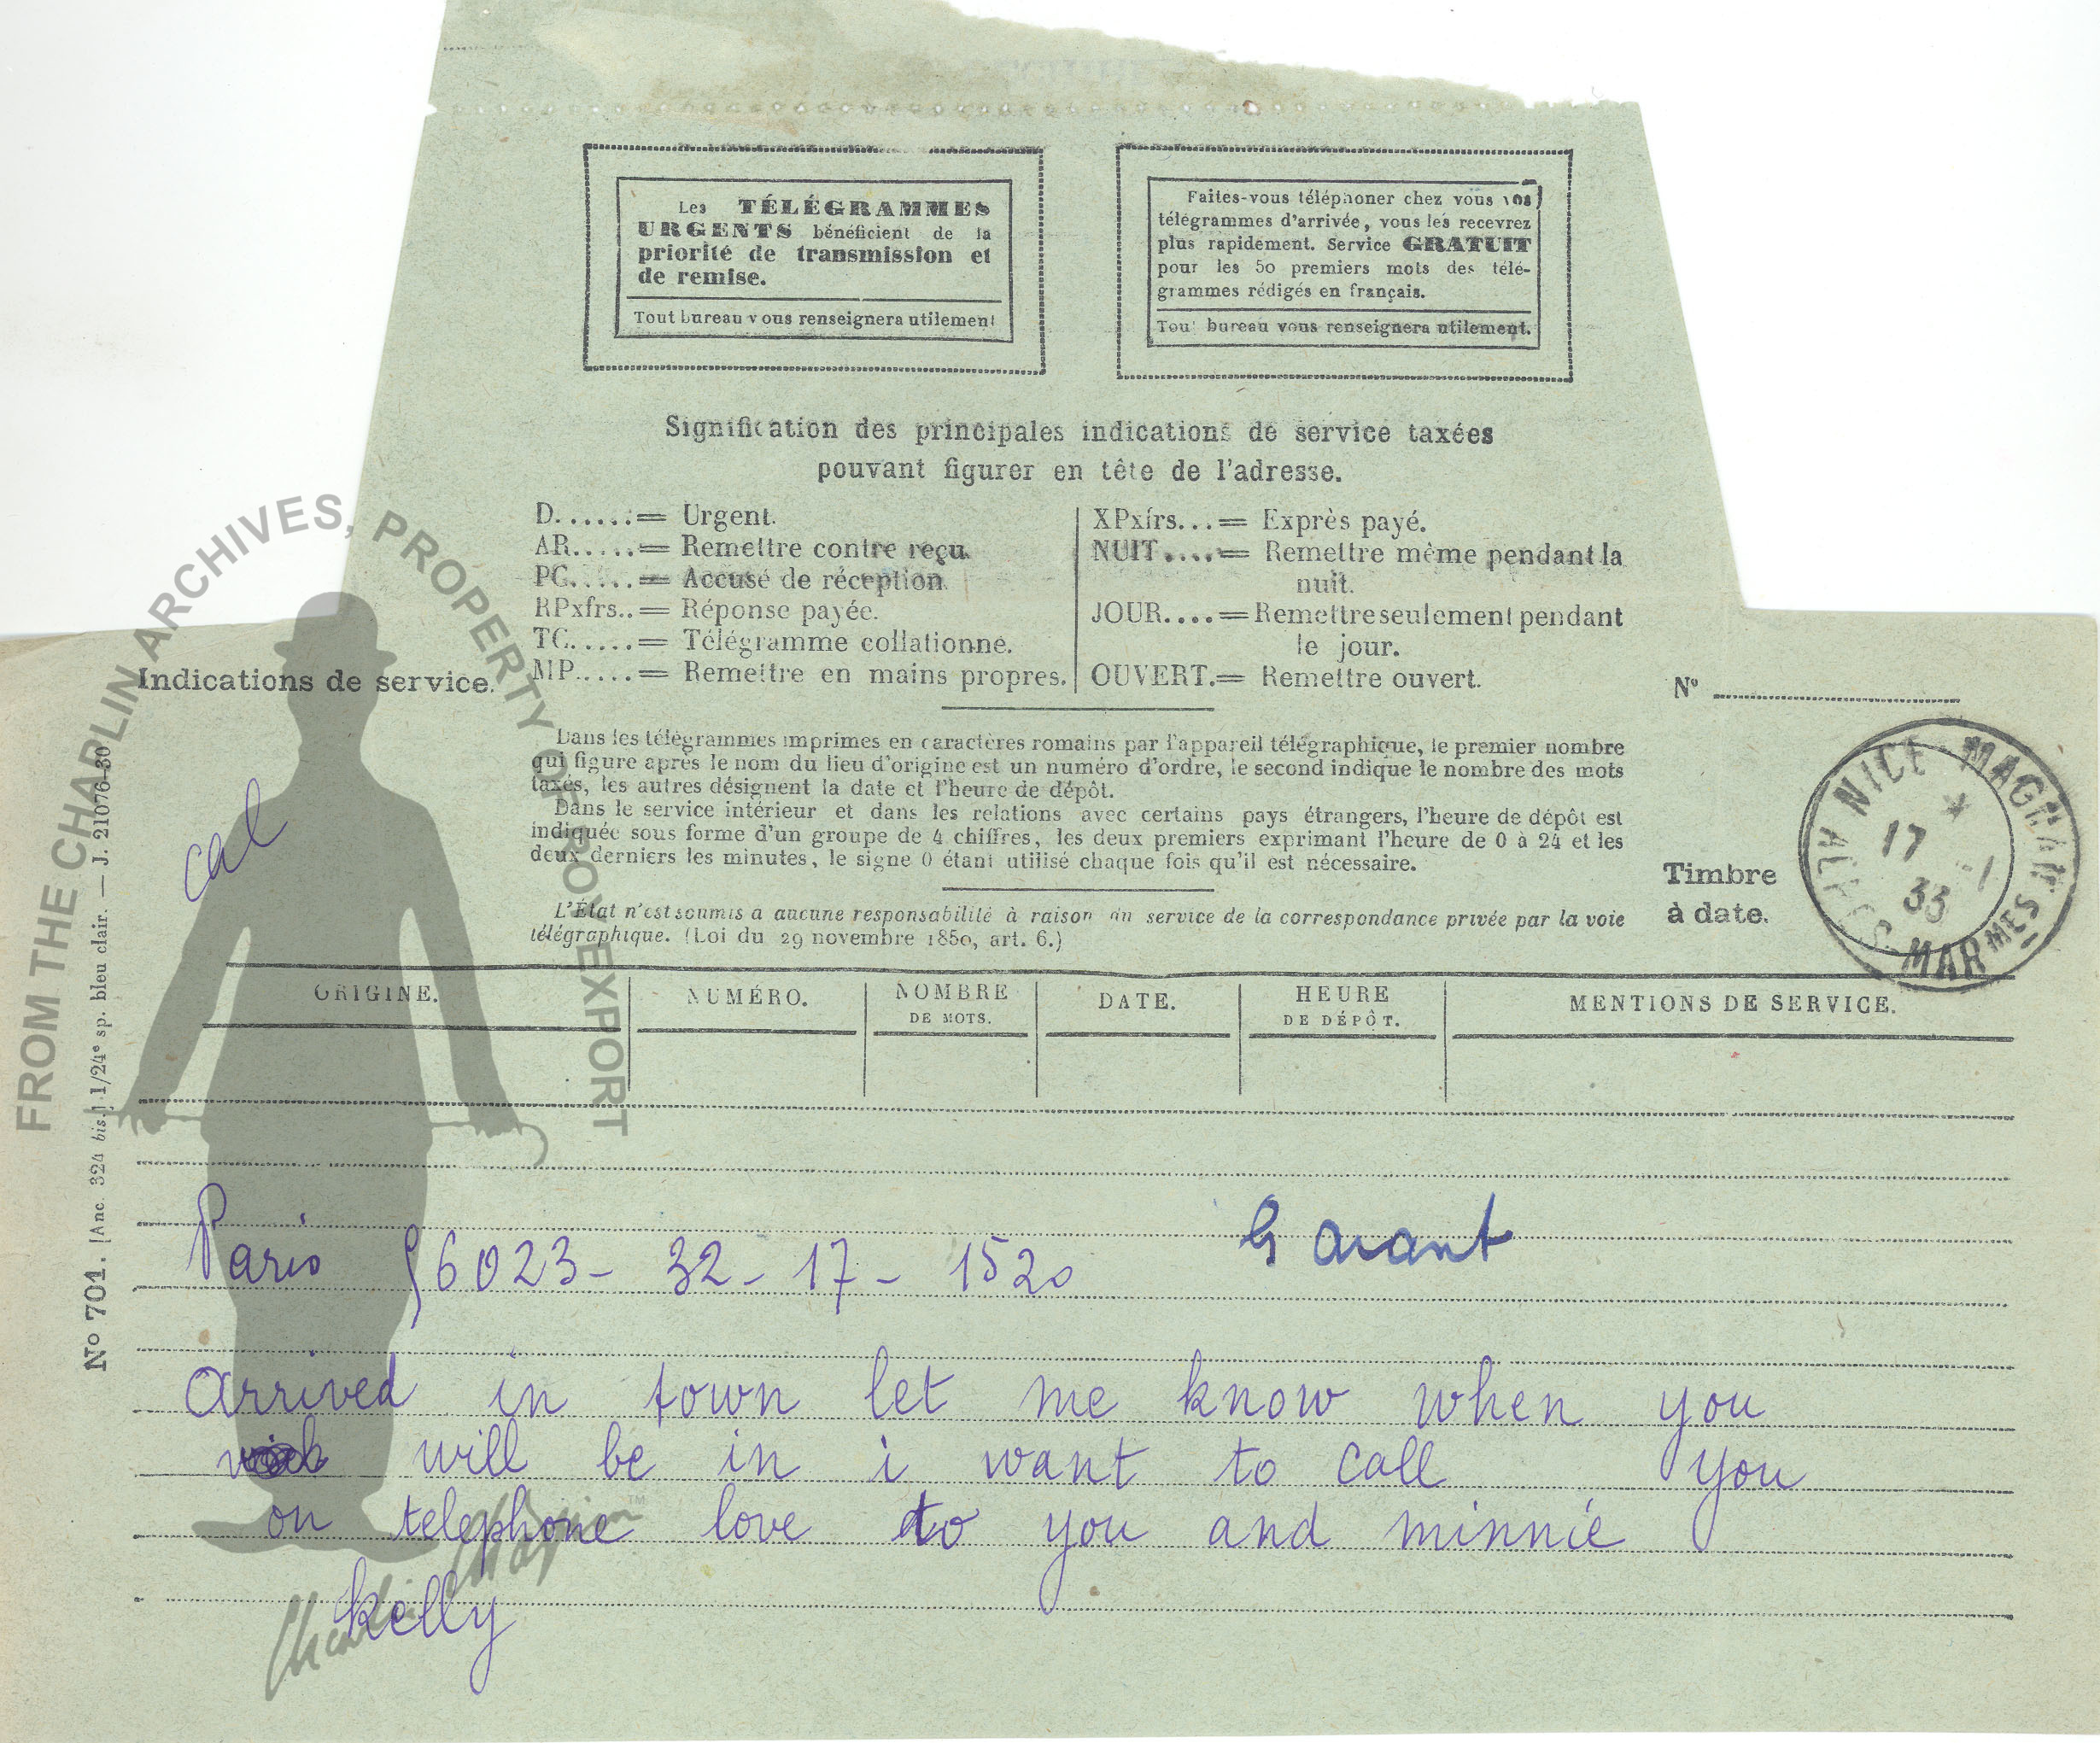 Les TÉLÉGRAMMES
URGENTS bénéficient de la
priorité de transmission et
de remise.
Tout bureau vous renseignera utilement
Faites-vous téléphoner chez vous vos
télégrammes d'arrivée, vous les recevrez
plus rapidement. Service GRATUIT
pour les 50 premiers mots des télé-
grammes rédigés en français.
Tout bureau vous renseignera utilement.
Signification des principales indications de service taxées
pouvant figurer en tête de l'adresse.
D......= Urgent.
AR.....= Remettre contre reçu.
PC.....= Accusé de réception.
RPxfrs..= Réponse payée.
TC.....= Télégramme collationné.
MP.....= Remettre en mains propres.
XPxfrs...= Exprès payé.
NUIT....= Remettre même pendant la
nuit.
JOUR....= Remettre seulement pendant
le jour.
OUVERT.= Remettre ouvert.
Indications de service.
N°
Dans les télégrammes imprimés en caractères romains par l'appareil télégraphique, le premier nombre
qui figure après le nom du lieu d'origine est un numéro d'ordre, le second indique le nombre des mots
taxés, les autres désignent la date et l'heure de dépôt.
Dans le service intérieur et dans les relations avec certains pays étrangers, l'heure de dépôt est
indiquée sous forme d'un groupe de 4 chiffres, les deux premiers exprimant l'heure de 0 à 24 et les
deux derniers les minutes, le signe 0 étant utilisé chaque fois qu'il est nécessaire.
L'État n'est soumis à aucune responsabilité à raison du service de la correspondance privée par la voie
télégraphique. (Loi du 29 novembre 1850, art. 6.)
Timbre
à date.
NICE MAGNAN
17 -1
33
ALPES MARMES
cal
N° 701. [Anc. 324 bis.] 1/24e sp. bleu clair. — J. 21076-30
FROM THE CHAPLIN ARCHIVES, PROPERTY OF ROY EXPORT
ORIGINE. NUMÉRO. NOMBRE DE MOTS. DATE. HEURE DE DÉPÔT. MENTIONS DE SERVICE.
Paris 56023- 32- 17- 1520
arrived in town let me know when you
will be in i want to call you
on telephone love to you and minnie
kelly
Charlie Chaplin™